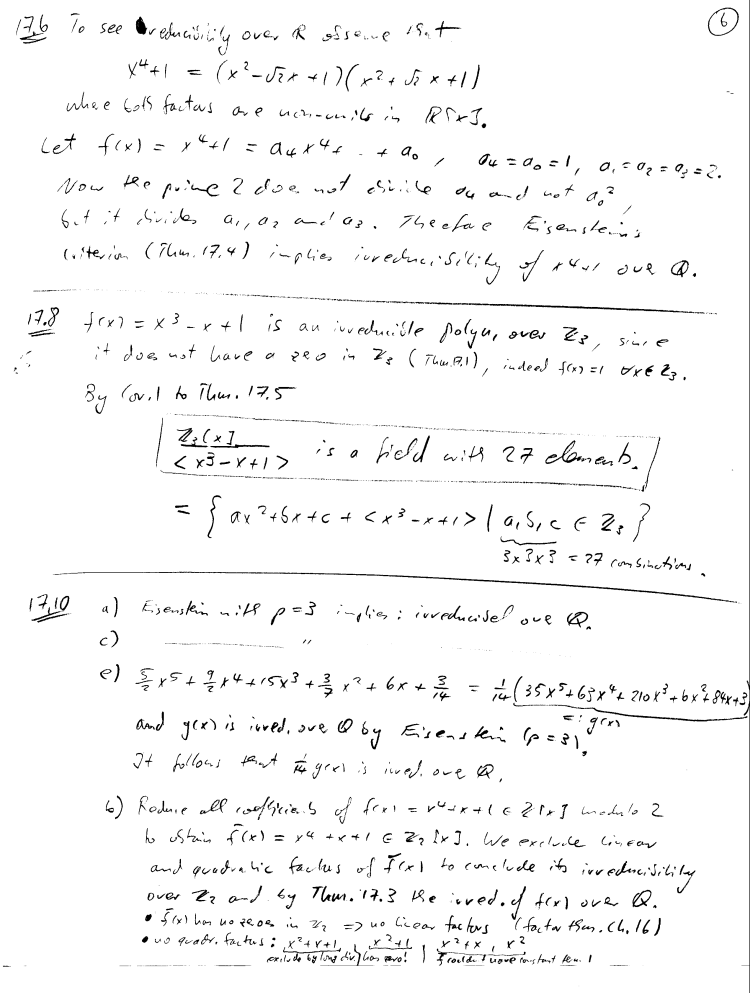 6
17.6 To see reducibility over R observe that
x⁴+1 = (x²-√2x+1)(x²+√2x+1)
where both factors are non-units in R[x].
Let f(x) = x⁴+1 = a₄x⁴+ ... + a₀, a₄=a₀=1, a₁=a₂=a₃=2.
Now the prime 2 does not divide a₄ and not a₀²,
but it divides a₁, a₂ and a₃. Therefore Eisenstein's
criterion (Thm. 17.4) implies irreducibility of x⁴+1 over Q.
17.8 f(x) = x³-x+1 is an irreducible polyn. over Z₃, since
it does not have a zero in Z₃ (Thm 17.1), indeed f(x)=1 ∀x∈Z₃.
By Cor. 1 to Thm. 17.5
Z₃[x] / <x³-x+1> is a field with 27 elements.
= { ax²+bx+c + <x³-x+1> | a,b,c ∈ Z₃ }
3x3x3 = 27 combinations.
17.10 a) Eisenstein with p=3 implies: irreducibel over Q.
c) ———— " ————
e) 5/2 x⁵ + 9/2 x⁴ + 15x³ + 3/7 x² + 6x + 3/14 = 1/14 (35x⁵+63x⁴+210x³+6x²+84x+3)
=: g(x)
and g(x) is irred. over Q by Eisenstein (p=3).
It follows that 1/14 g(x) is irred. over Q.
b) Reduce all coefficients of f(x) = x⁴+x+1 ∈ Z[x] modulo 2
to obtain f̄(x) = x⁴+x+1 ∈ Z₂[x]. We exclude linear
and quadratic factors of f̄(x) to conclude its irreducibility
over Z₂ and by Thm. 17.3 the irred. of f(x) over Q.
• f̄(x) has no zeroes in Z₂ => no linear factors (factor thm. Ch. 16)
• no quadr. factors: x²+x+1, x²+1, x²+x, x²
exclude by long div. | has zero! | couldn't have constant term 1